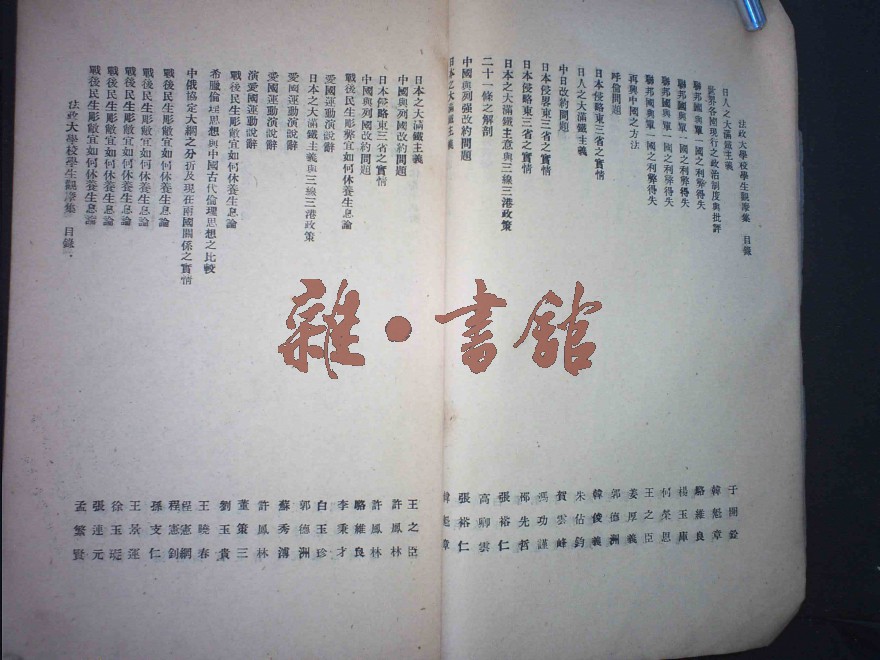 法政大學校學生觀摩集 目錄
日人之大滿鐵主義 于
世界各國現行之政治制度與批評 韓魁章
聯邦國與單一國之利弊得失 駱維良
聯邦國與單一國之利弊得失 楊玉庫
聯邦國與單一國之利弊得失 何榮思
聯邦國與單一國之利弊得失 王之臣
再興中國之方法 姜厚義
呼倫問題 郭德洲
日本侵略東三省之實情 韓俊義
日人之大滿鐵主義 朱佔鈞
中日改約問題 賀雲峰
日本侵畧東三省之實情 馮功謹
日本侵略東三省之實情 祁先哲
日本之大滿鐵主意與三線三港政策 張裕仁
二十一條之解剖 高卿雲
中國與列强改約問題 張裕仁
日本之大滿鐵主義 韓魁章
日本之大滿鐵主義 王之臣
中國與列國改約問題 許鳳林
日本侵略東三省之實情 許鳳林
中國與列國改約問題 駱維良
戰後民生彫弊宜如何休養生息論 李秉才
愛國運動演說辭 白玉珍
日本之大滿鐵主義與三線三港政策 郭德洲
愛國運動演說辭 蘇秀溥
愛國運動說辭 許鳳林
演愛國運動說辭 董策三
戰後民生彫敝宜如何休養生息論 劉玉貴
希臘倫理思想與中國古代倫理思想之比較 王曉春
中俄協定大綱之分析及現在兩國關係之實情 程憲網 程憲釗
戰後民生彫敝宜如何休養生息論 孫支仁
戰後民生彫敝宜如何休養生息論 王景運
戰後民生彫敝宜如何休養生息論 徐玉璇
戰後民生彫敝宜如何休養生息論 張連元
戰後民生彫敝宜如何休養生息論 孟繁賢
法政大學校學生觀摩集 目錄
雜·書館